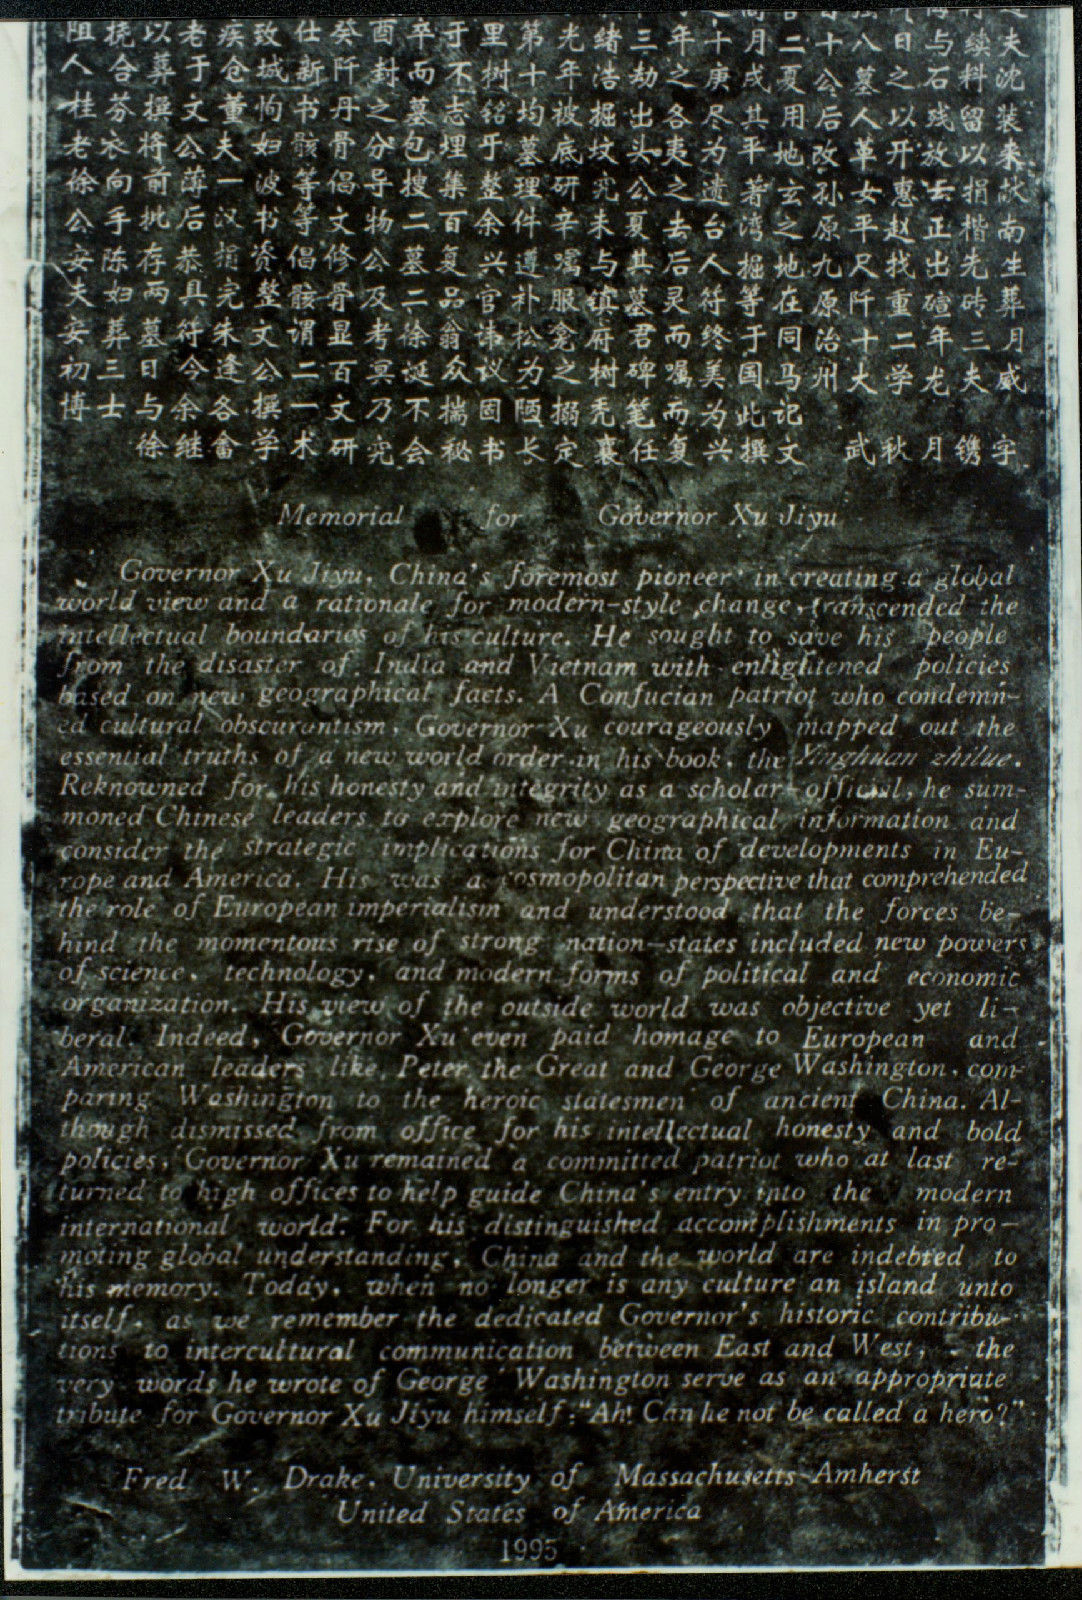 夫沈装来故南生葬月威字
续料留以捐楷先砖三夫镌
与石残放去正出碹年龙月
日之以开惠赵找重二学秋
八墓人革女平尺阡十大武
十公后改孙原九原治州
二夏用地玄之地在同马记文
月戌其平著湾掘等于国此撰
十庚尽为遗台人符终美为兴
年之各夷之去后灵而嘱而复
三劫出头公夏其墓君碑笔任
绪浩掘坟究未与镇府树秃襄
光年被底研辛嘱服龛之搦定
第十均墓理件遵朴松为陋长
里树铭于整余兴官讳议固书
于不志埋集百复品翁众揣秘
卒而墓包搜二墓二徐诞不会
酉封之分导物公及考冥乃究
癸阡丹骨倡文修骨显百文研
仕新书骸等等倡骸谓二一术
致城恂妇波书资整文公撰学
疾仓董夫一汉捐完朱逢各畲
老于文公薄后恭具符今余继
以葬撰将前批存两墓日与徐
挠合芬衣向手陈妇葬三士
阻人桂老徐公安夫安初博
Memorial for Governor Xu Jiyu
Governor Xu Jiyu, China's foremost pioneer in creating a global
world view and a rationale for modern-style change, transcended the
intellectual boundaries of his culture. He sought to save his people
from the disaster of India and Vietnam with enlightened policies
based on new geographical facts. A Confucian patriot who condemn-
ed cultural obscurantism, Governor Xu courageously mapped out the
essential truths of a new world order in his book, the Yinghuan zhilue.
Reknowned for his honesty and integrity as a scholar-official, he sum-
moned Chinese leaders to explore new geographical information and
consider the strategic implications for China of developments in Eu-
rope and America. His was a cosmopolitan perspective that comprehended
the role of European imperialism and understood that the forces be-
hind the momentous rise of strong nation-states included new powers
of science, technology, and modern forms of political and economic
organization. His view of the outside world was objective yet li-
beral. Indeed, Governor Xu even paid homage to European and
American leaders like Peter the Great and George Washington, com-
paring Washington to the heroic statesmen of ancient China. Al-
though dismissed from office for his intellectual honesty and bold
policies, Governor Xu remained a committed patriot who at last re-
turned to high offices to help guide China's entry into the modern
international world. For his distinguished accomplishments in pro-
moting global understanding, China and the world are indebted to
his memory. Today, when no longer is any culture an island unto
itself, as we remember the dedicated Governor's historic contribu-
tions to intercultural communication between East and West, the
very words he wrote of George Washington serve as an appropriate
tribute for Governor Xu Jiyu himself: "Ah! Can he not be called a hero?"
Fred W. Drake, University of Massachusetts-Amherst
United States of America
1995